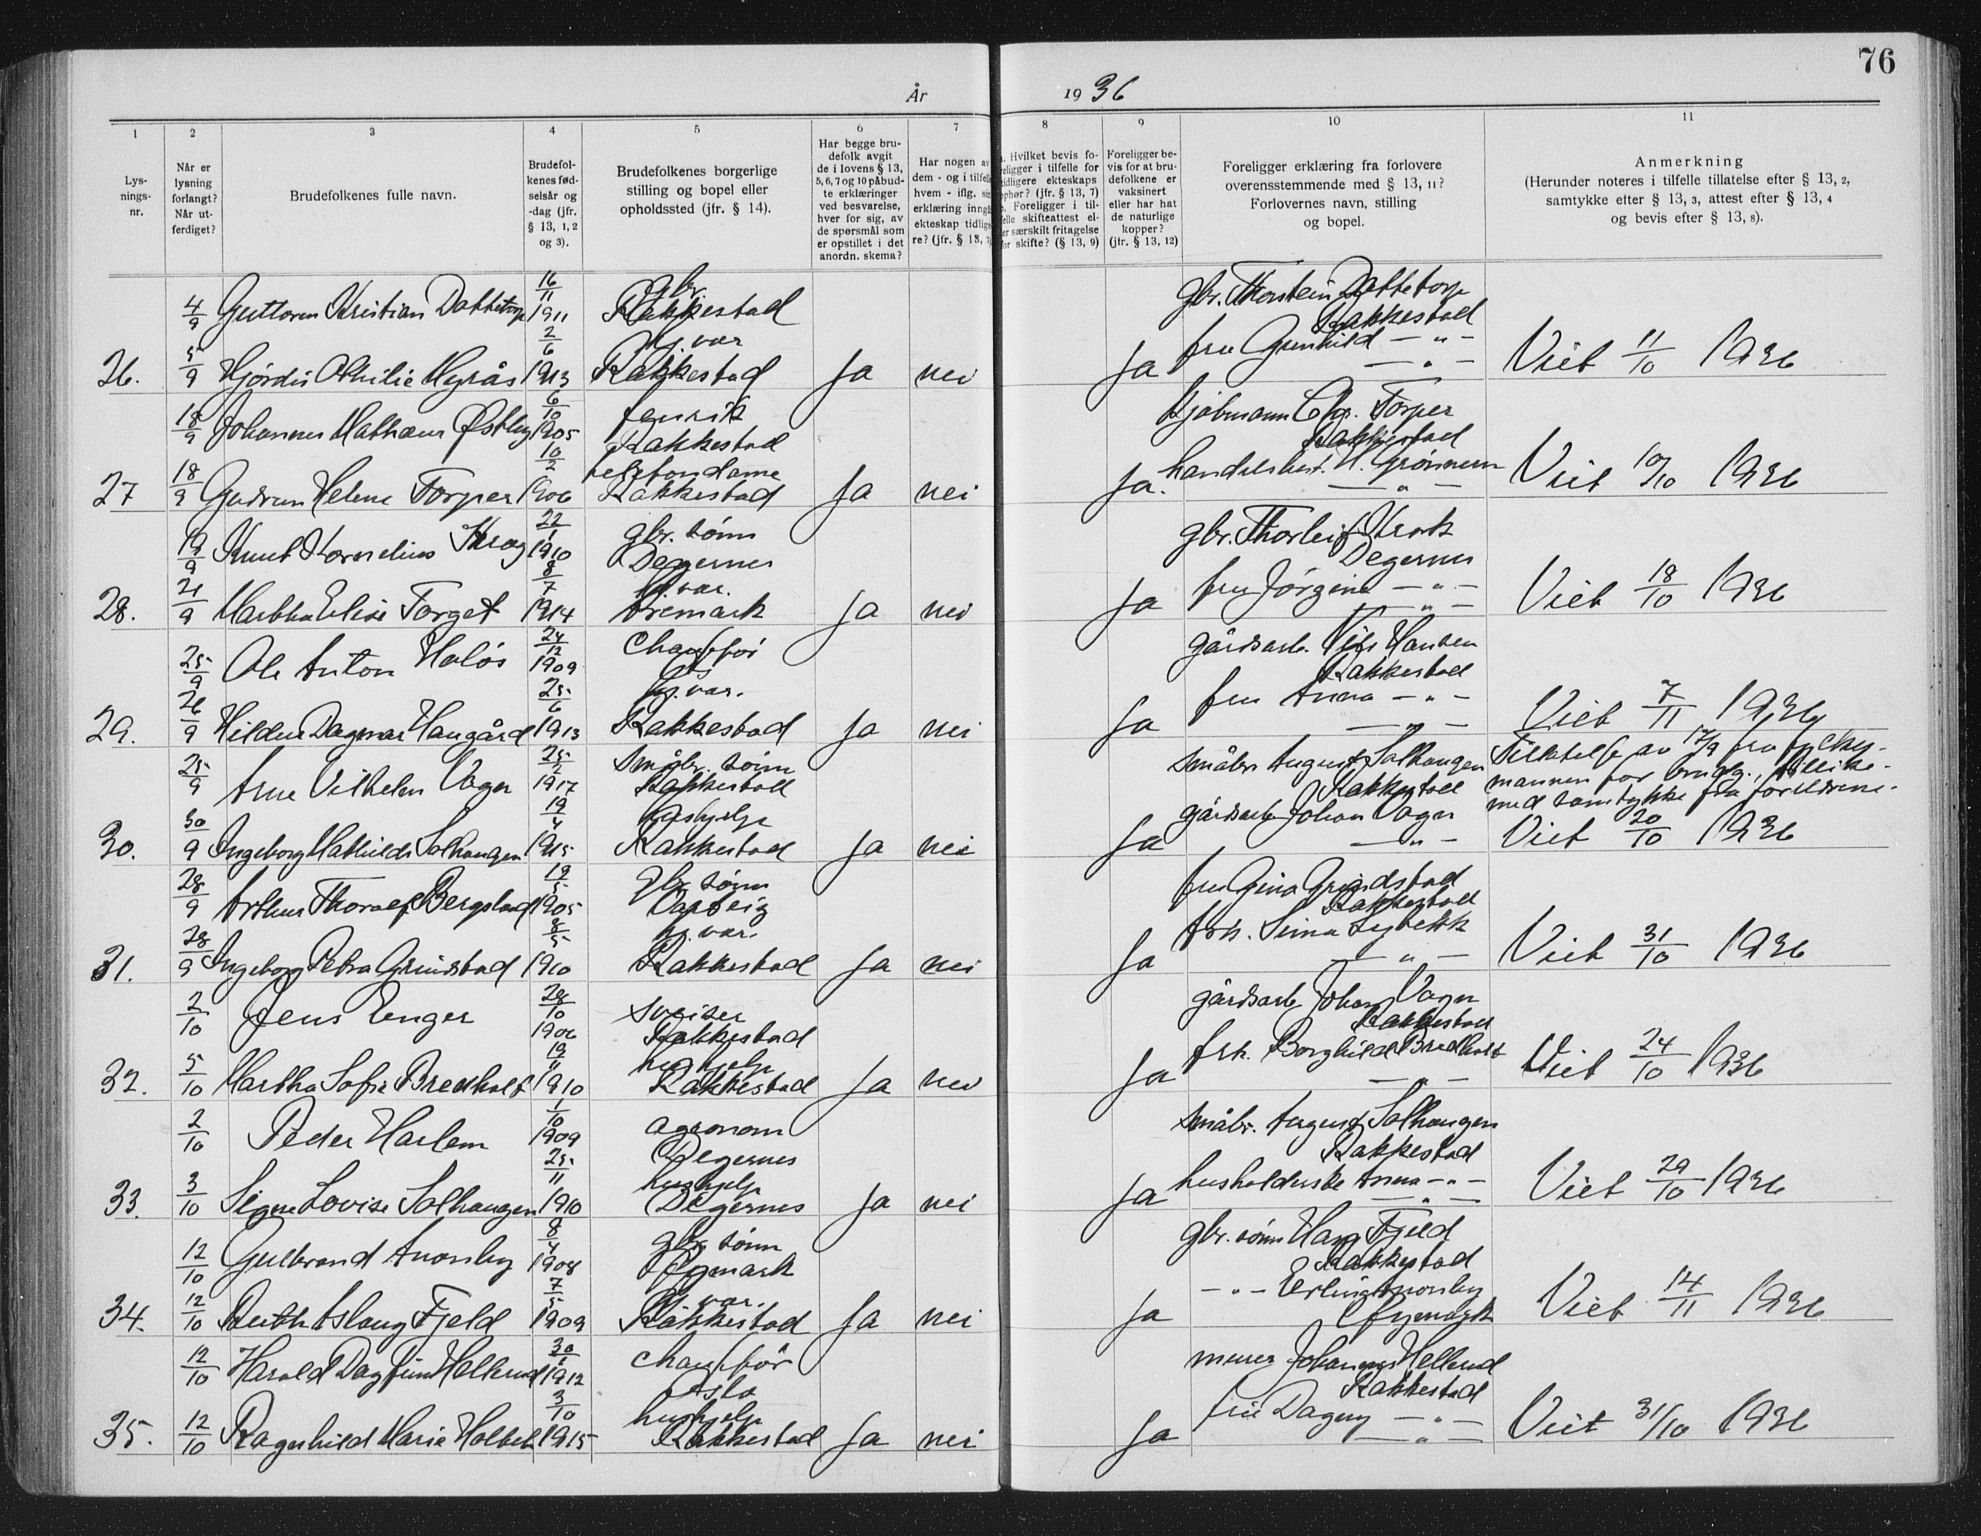 76
År 1936
1 2 3 4 5 6 7 8 9 10 11
Lys-
nings-
nr.
Når er
lysning
forlangt?
Når ut-
ferdiget?
Brudefolkenes fulle navn.
Brudefol-
kenes fød-
selsår og
-dag (jfr.
§ 13, 1, 2
og 3).
Brudefolkenes borgerlige
stilling og bopel eller
opholdssted (jfr. § 14).
Har begge bru-
defolk avgit
de i lovens § 13,
5, 6, 7 og 10 påbud-
te erklæringer
ved besvarelse,
hver for sig, av
de spørsmål som
er opstillet i det
anordn. skema?
Har nogen av
dem - og i tilfelle
hvem - iflg.
erklæring inngå
ekteskap tidlige
re? (jfr. § 13, 7)
Hvilket bevis fo-
religger i tilfelle for
tidligere ekteskaps
ophør? (jfr. § 13, 7)
Foreligger i til-
felle skifteattest el-
ler særskilt fritagelse
for skifte? (§ 13, 9)
Foreligger be-
vis for at bru-
defolkene er
vaksinert
eller har hat
de naturlige
kopper?
(jfr. § 13, 12)
Foreligger erklæring fra forlovere
overensstemmende med § 13, 11?
Forlovernes navn, stilling
og bopel.
Anmerkning
(Herunder noteres i tilfelle tillatelse efter § 13, 2,
samtykke efter § 13, 3, attest efter § 13, 4
og bevis efter § 13, 8).
4/9 Guttorm Kristian Dattetorp 16/11 1911 gbr. Rakkestad gbr. Thorstein Dattetorp Rakkestad
26. 5/9 Hjørdis Othilie Myrås 2/6 1913 hj.var Rakkestad Ja nei Ja fru Gunhild — " — Viet 11/10 1936
18/9 Johannes Mathæus Østby 6/10 1905 fenrik Rakkestad kjøbmann Chr. Torper Rakkestad
27 18/9 Gudrun Helene Torper 10/2 1906 telefondame Rakkestad Ja nei Ja. handelsbest. H. Grønnern — " — Viet 10/10 1936
19/9 Knut Kornelius Krog 22/1 1910 gbr. sønn Degernes gbr. Thorleif Krok Degernes
28. 21/9 Martha Elise Torget 8/7 1914 hj.var. Øremark Ja nei Ja fru Jørgine — " — Viet 18/10 1936
25/9 Ole Anton Holøs 24/12 1909 Chauffør gårdsarb. Nils Hansen Rakkestad
29. 26/9 Hildur Dagmar Haugård 25/6 1913 hj.var. Rakkestad Ja nei Ja fru Anna — " — Viet 7/11 1936
25/9 Arne Vilhelm Vagn 25/2 1917 småbr. sønn Rakkestad småbr. August Solhaugen Rakkestad Tillatelse av 17/9 fra fylkes-
mannen for brudg., tillike-
med samtykke fra foreldrene.
30. 30/9 Ingeborg Mathilde Solhaugen 19/4 1915 hushjelp Rakkestad Ja nei Ja gårdsarb Johan Vagn — " — Viet 20/10 1936
28/9 Arthur Thoralf Bergstad 19/5 1905 gbr. sønn Varteig fru Gina Grindstad Rakkestad
31. 28/9 Ingeborg Petra Grindstad 8/5 1910 hj. var. Rakkestad Ja nei Ja frk. Signe Lybekk — " — Viet 31/10 1936
2/10 Jens Enger 28/10 1906 sveiser Rakkestad gårdsarb Johan Vagn Rakkestad
32. 5/10 Martha Sofie Bredholt 19/11 1910 hushjelp Rakkestad Ja nei Ja frk. Borghild Bredholt — " — Viet 24/10 1936
2/10 Peder Harlem 1/10 1909 agronom Degernes småbr. August Solhaugen Rakkestad
33. 3/10 Signe Lovise Solhaugen 25/11 1910 hushjelp Degernes Ja nei Ja husholderske Anna — " — Viet 29/10 1936
12/10 Gulbrand Anonby 8/4 1908 gbr. sønn Øymark gbr. sønn Hans Fjeld Rakkestad
34. 12/10 Ruth Aslaug Fjeld 7/5 1909 hj.var. Rakkestad Ja nei Ja — " — Erling Anonby Øymark Viet 14/11 1936
12/10 Harald Dagfinn Hellerud 30/1 1912 chauffør Oslo murer Johannes Hellerud Rakkestad
35. 12/10 Ragnhild Marie Holtet 3/10 1915 hushjelp Rakkestad Ja nei Ja fru Dagny — " — Viet 31/10 1936